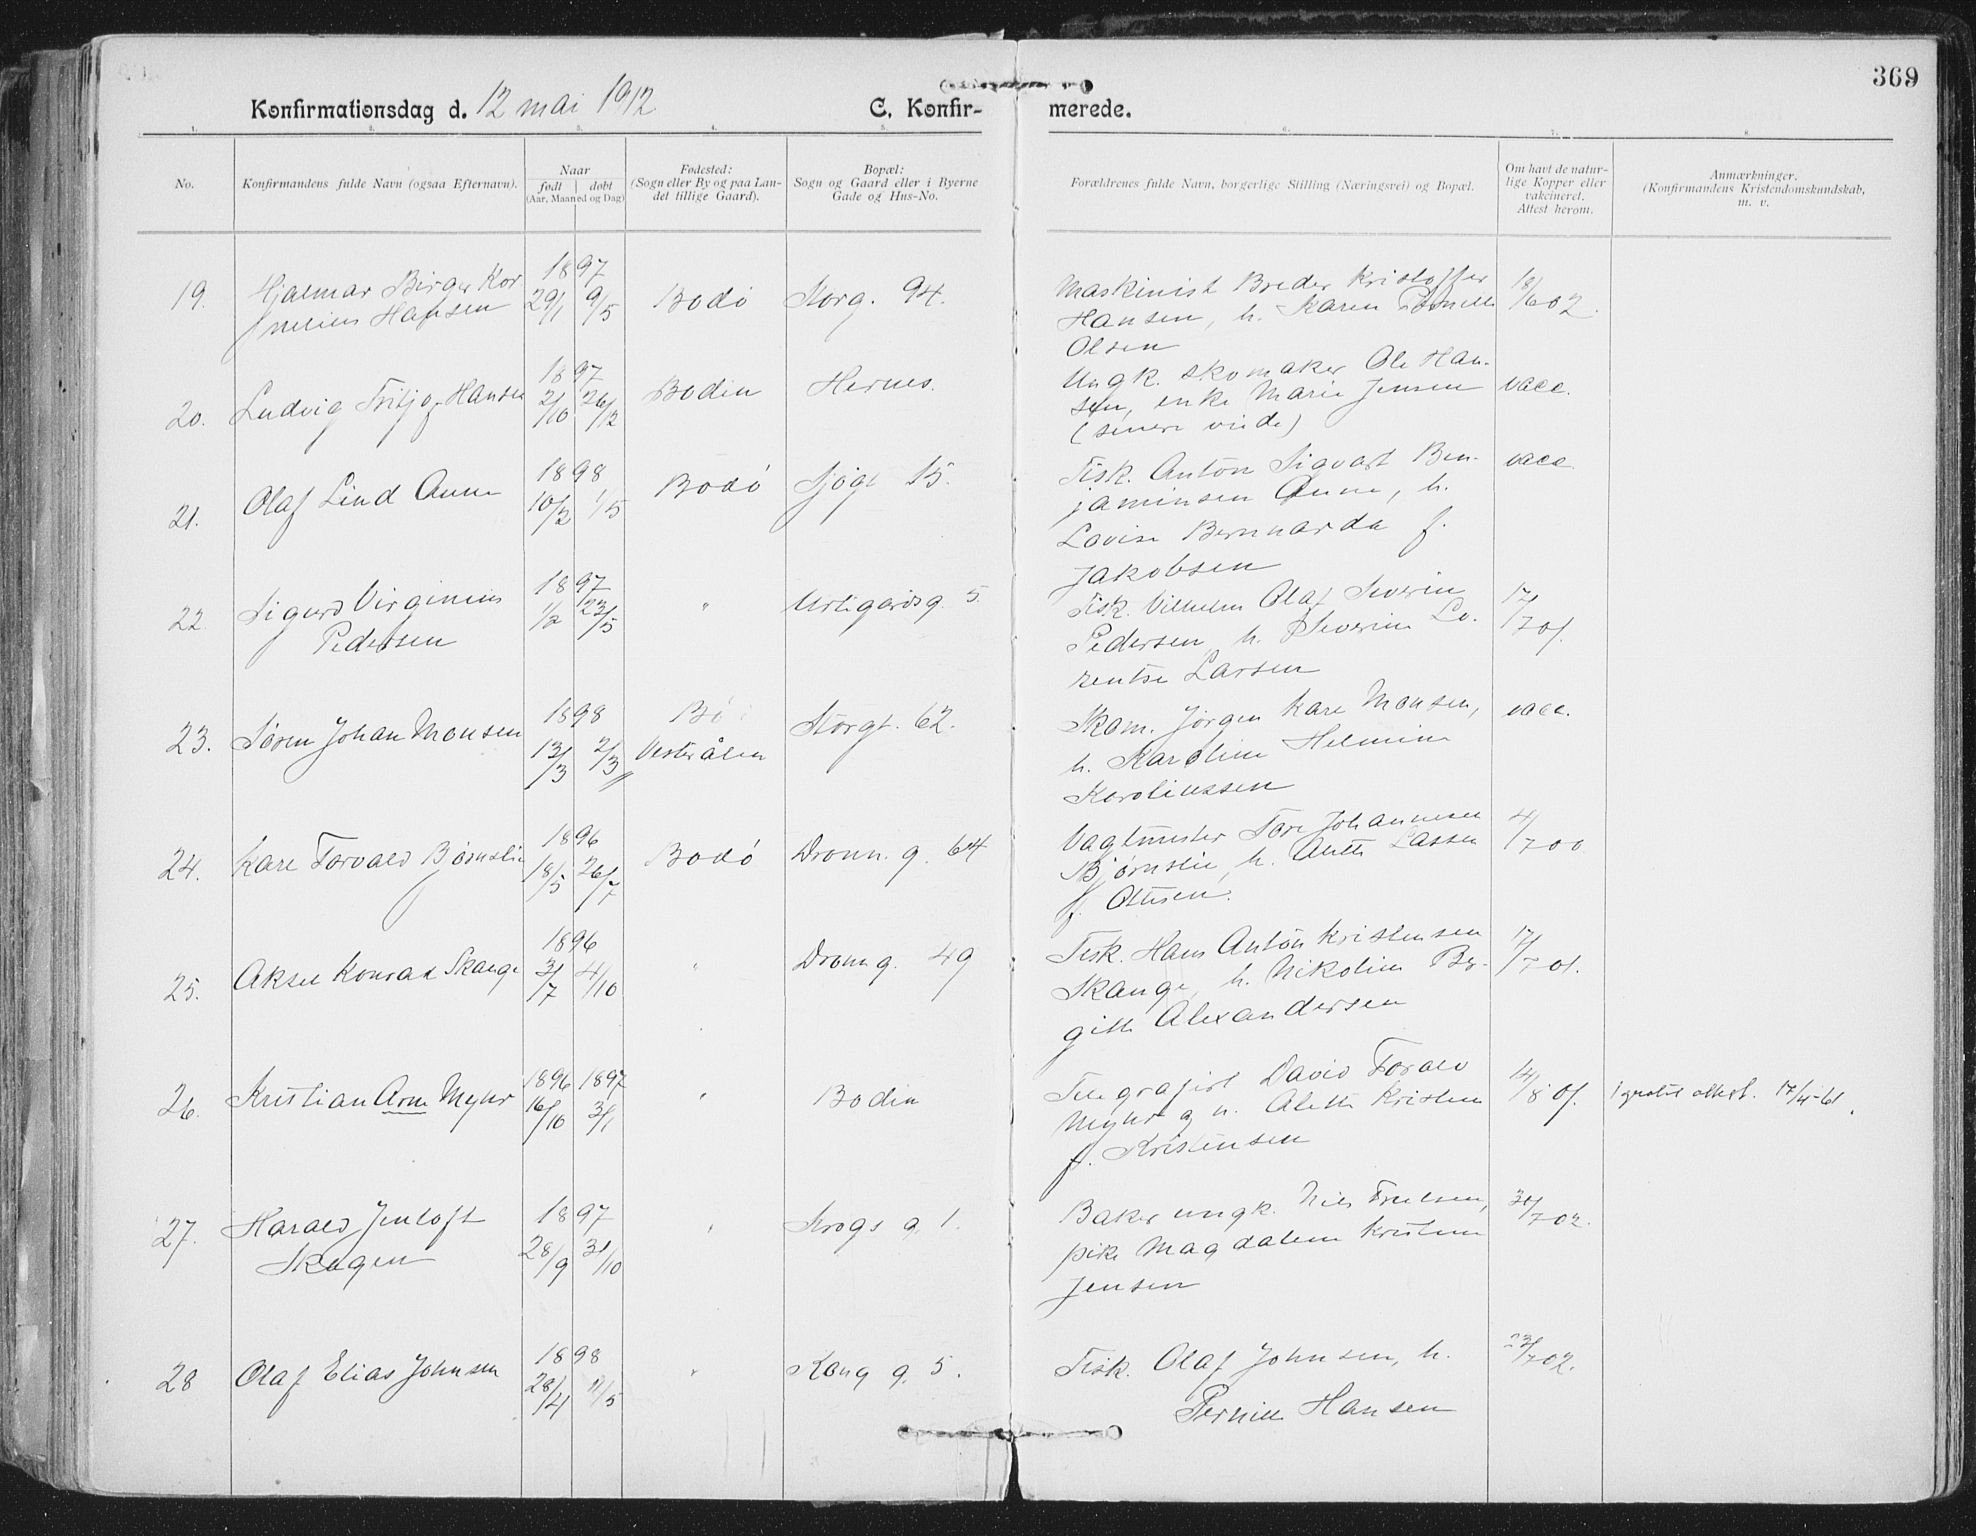 369
Konfirmationsdag d. 12 mai 1912 C. Konfir- merede.
1. 2. 3. 4. 5. 6. 7. 8.
No.
Konfirmandens fulde Navn (ogsaa Efternavn).
Naar
født | døbt
(Aar, Maaned og Dag)
Fødested:
(Sogn eller By og paa Lan-
det tillige Gaard).
Bopæl:
Sogn og Gaard eller i Byerne
Gade og Hus-No.
Forældrenes fulde Navn, borgerlige Stilling (Næringsvei) og Bopæl.
Om havt de natur-
lige Kopper eller
vakcineret.
Attest herom.
Anmærkninger.
(Konfirmandens Kristendomskundskab,
m. v.
19. Hjalmar Birger Kor
nelius Hansen
1897
29/1 9/5
Bodø
Storg. 94.
Maskinist Breder Kristoffer
Hansen, h. Karen Pernille
Olsen
18/6 02.
20. Ludvig Fritjof Hansen
1897
2/10 26/12
Bodin
Hernes.
Ungk. skomaker Ole Han-
sen, enke Marie Jensen
(senere vied)
vacc.
21. Olaf Lind Aune
1898
10/2 1/5
Bodø
Sjøgt 15.
Fisk. Anton Sigvart Ben-
jaminsen Aune, h.
Lovise Bernharda f.
Jakobsen
vacc.
22. Sigurd Virginius
Pedersen
1897
1/2 23/5
"
Urtigårdsg. 5.
Fisk. Vilhelm Olaf Severin
Pedersen, h. Severine Lo-
rentse Larsen
17/7 01.
23. Søren Johan Monsen
1898
13/3 2/3
Bø i
Vesterålen
Storgt. 62.
Skom. Jørgen Kare Monsen,
h. Karoline Helmine
Karolinssen
vacc.
24. Kare Torvald Bjørnslie
1896
18/5 26/7
Bodø
Dronn. g. 64
Vagtmester Tore Johannesen
Bjørnslie, h. Anette Lassen
f. Ottesen.
4/7 00
25. Aksel Konrad Skauge
1896
3/7 4/10
"
Dronn g. 49
Fisk. Hans Anton Kristensen
Skauge, h. Nikoline Ber-
gitte Alexandersen
17/7 01.
26. Kristian Arne Myhr
1896 1897
16/10 3/1
"
Bodin
Telegrafist David Torald
Myhr og h. Alette Kristine
f. Kristensen
14/8 01.
1 gratis attest. 17/4-61
27. Harald Jentoft
Skagen
1897
28/9 31/10
"
Krogs g. 1.
Baker ungk. Nils Truelsen,
pike Magdalene Kristine
Jensen
30/7 02.
28 Olaf Elias Johnsen
1898
28/4 11/5
"
Kong g. 5.
Fisk. Olaf Johnsen, h.
Pernille Hansen
23/7 02.